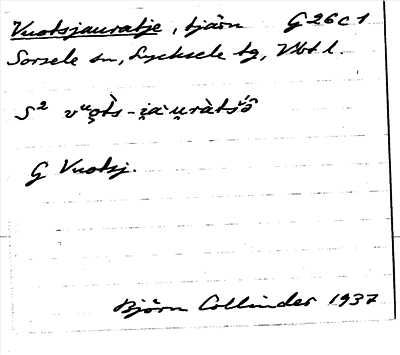 Vuotsjauratje, tjärn G 26 c 1
Sorsele sn, Lycksele tg, Vbt l.
S² vᵘo̧t̀s-i̯a·u̯ràtś'ô
G Vuotsj.
Björn Collinder 1937